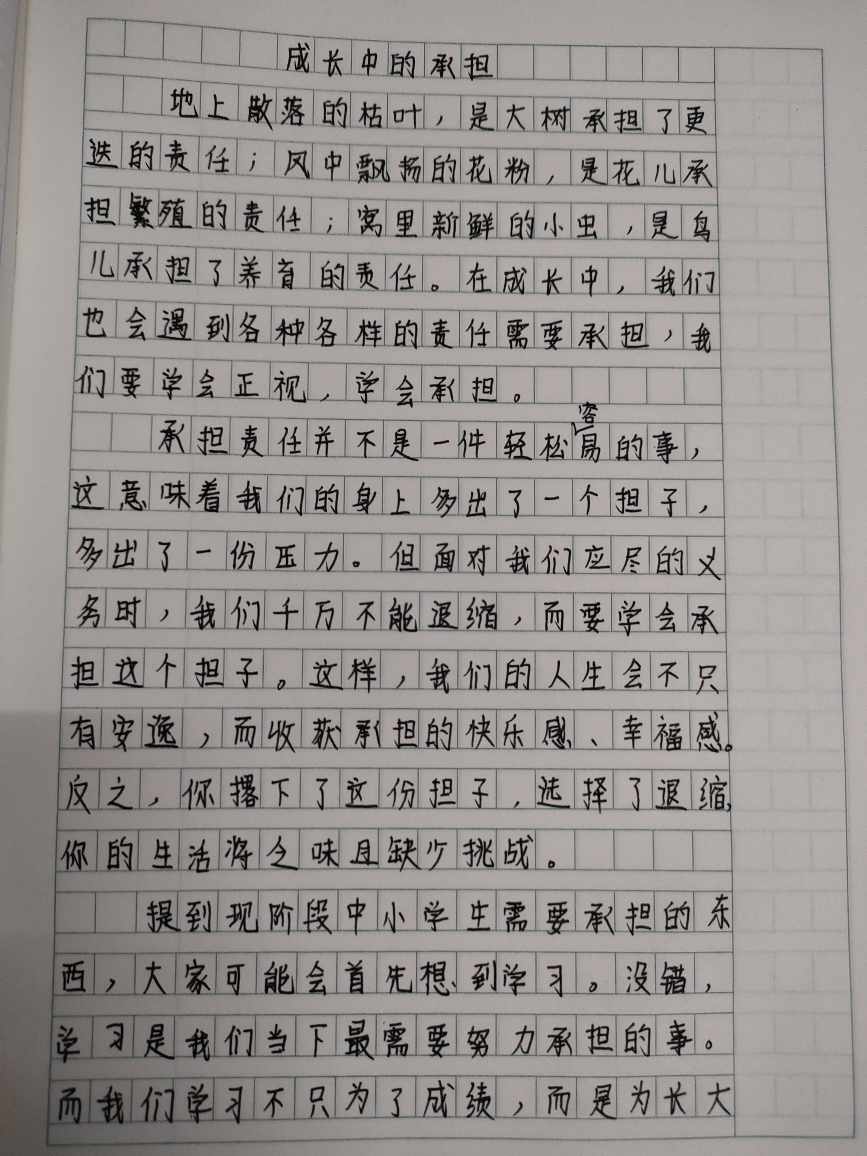 成长中的承担
地上散落的枯叶，是大树承担了更
迭的责任；风中飘扬的花粉，是花儿承
担繁殖的责任；窝里新鲜的小虫，是鸟
儿承担了养育的责任。在成长中，我们
也会遇到各种各样的责任需要承担，我
们要学会正视，学会承担。
承担责任并不是一件轻松容易的事，
这意味着我们的身上多出了一个担子，
多出了一份压力。但面对我们应尽的义
务时，我们千万不能退缩，而要学会承
担这个担子。这样，我们的人生会不只
有安逸，而收获承担的快乐感、幸福感。
反之，你撂下了这份担子，选择了退缩，
你的生活将乏味且缺少挑战。
提到现阶段中小学生需要承担的东
西，大家可能会首先想到学习。没错，
学习是我们当下最需要努力承担的事。
而我们学习不只为了成绩，而是为长大